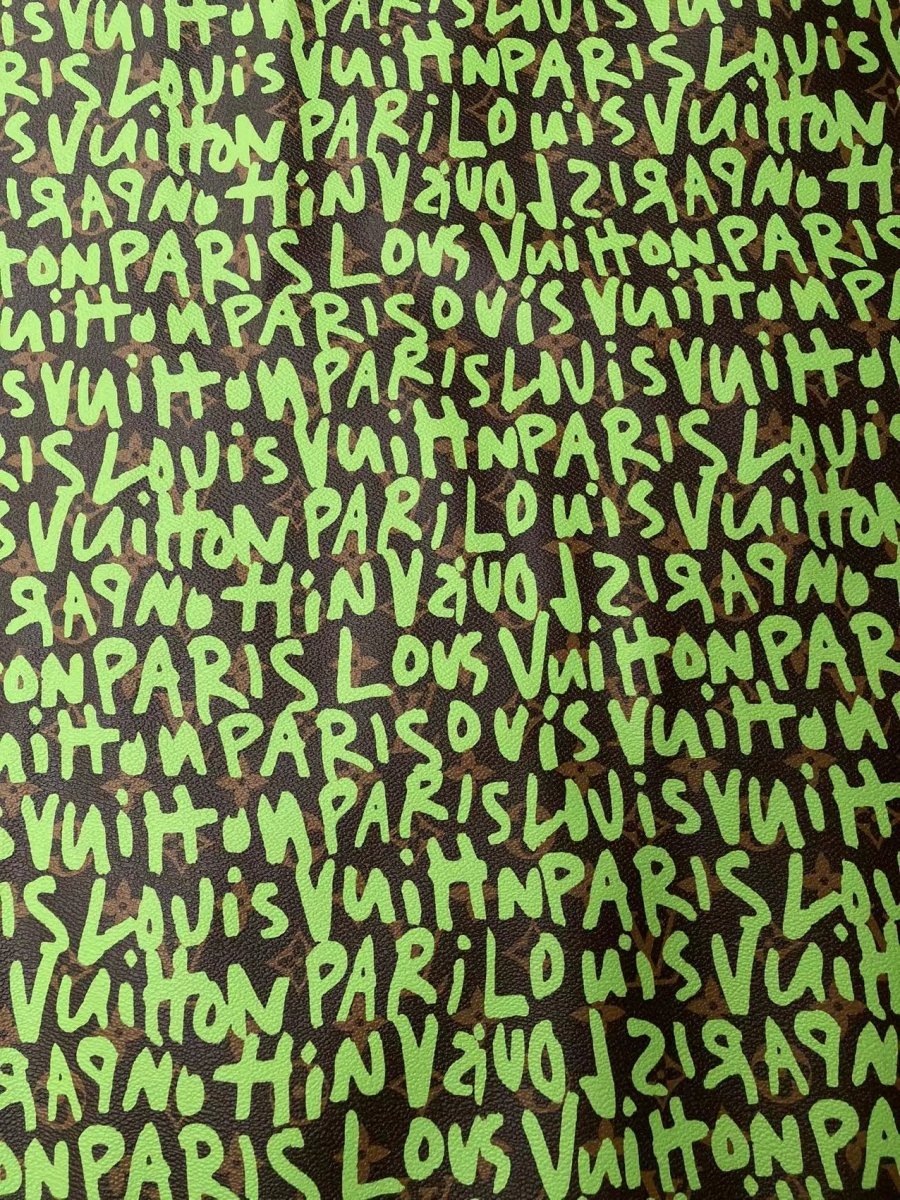 Louis Vuitton PARIS Louis Vuitton
RIS Louis VuittoN PARIS Louis
S VuittoN PARi LOuis VuittoN
SIRAP noHiN Vsiuo L SIRAP noH
toN PARIS Lous VuittoN PARIS
uitton PARIS ovis Vuitton PA
is Vuitton PARIS Louis Vuitton
RIS Louis VuittoN PARIS Louis
S VuittoN PARi LOuis VuittoN
RAP noHiN Vsiuo L SIRAP no
oN PARIS Lous VuittoN PAR
uitton PARIS ovis Vuitton
s Vuitton PARIS Louis Vuitt
is Louis VuittoN PARIS Lou
VuittoN PARi LOuis Vuitt
RAP noHiN Vsiuo L SIRAP n
ON PARIS Lous VuittoN PA